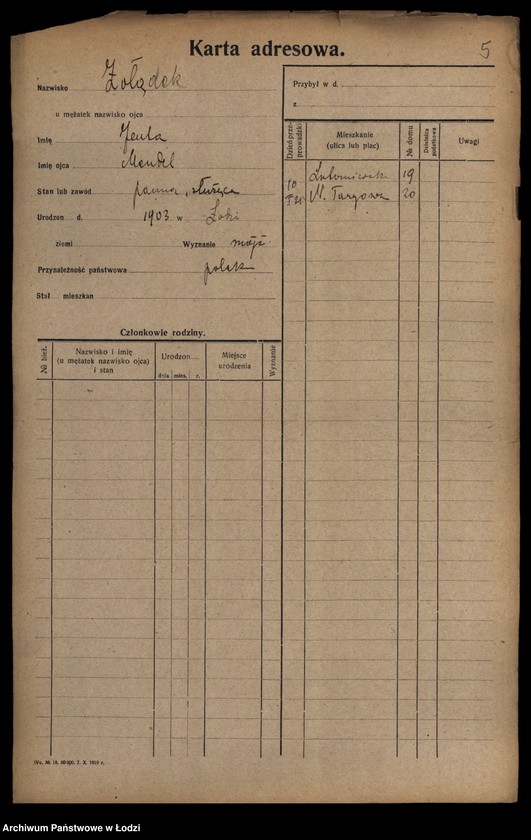 5
Karta adresowa.
Nazwisko Żołądek
u mężatek nazwisko ojca
Imię Jenta
Imię ojca Mendel
Stan lub zawód panna, służąca
Urodzon d. 1903 w Łodzi
ziemi Wyznanie mojż
Przynależność państwowa polsk
Stał mieszkan
Przybył w d.
z
Dzień przeprowadzki Mieszkanie (ulica lub plac) № domu Dzielnica podatkowa Uwagi
Lutomiersk 19
10 N. Targowa 20
Członkowie rodziny.
№ bież. Nazwisko i imię (u mężatek nazwisko ojca) i stan Urodzon Miejsce urodzenia Wyznanie
dnia mies. r.
Archiwum Państwowe w Łodzi